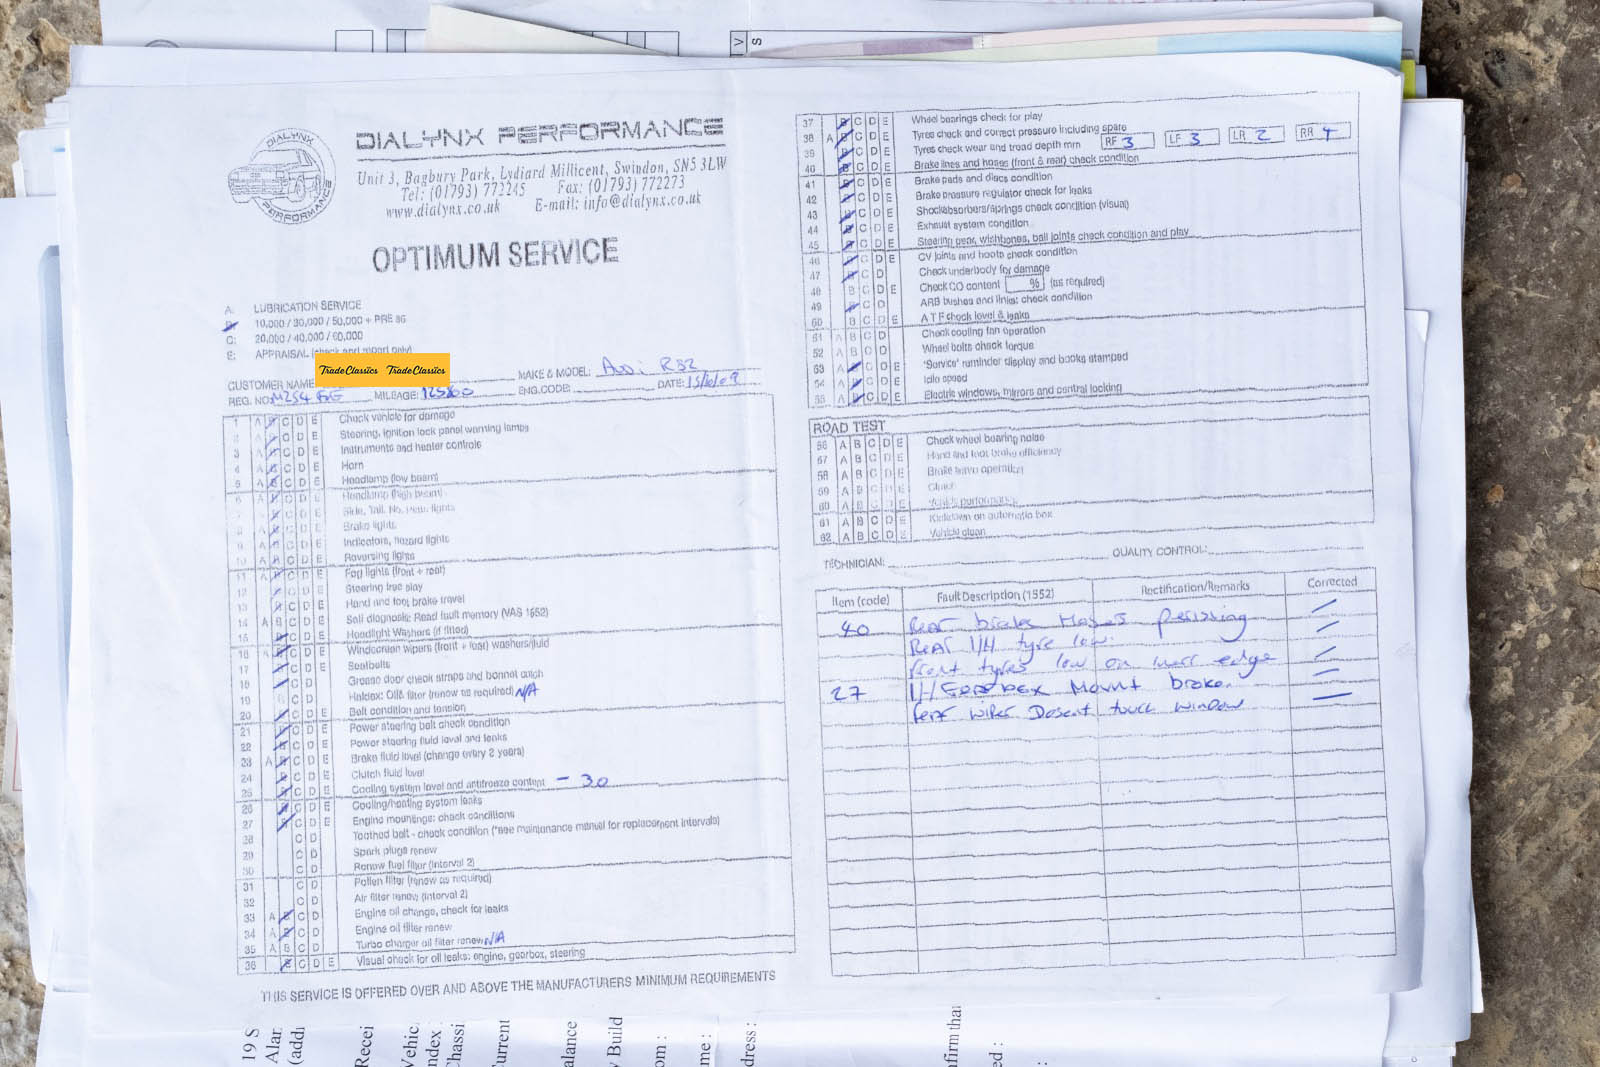 DIALYNX
PERFORMANCE
DIALYNX PERFORMANCE
Unit 3, Bagbury Park, Lydiard Millicent, Swindon, SN5 3LW
Tel: (01793) 772245 Fax: (01793) 772273
www.dialynx.co.uk E-mail: info@dialynx.co.uk
OPTIMUM SERVICE
A: LUBRICATION SERVICE
10,000 / 30,000 / 50,000 + PRE 96
C: 20,000 / 40,000 / 60,000
E: APPRAISAL (check and report only)
TradeClassics TradeClassics
CUSTOMER NAME: MAKE & MODEL: Audi RS2
REG. NO: MILEAGE: ENG.CODE: DATE:
1 A B C D E Check vehicle for damage
2 A B C D E Steering, ignition lock panel warning lamps
3 A B C D E Instruments and heater controls
4 A B C D E Horn
5 A B C D E Headlamp (low beam)
6 A B C D E Headlamp (high beam)
Side, Tail, No. Plate, lights
Brake lights
9 A B C D E Indicators, hazard lights
10 A B C D E Reversing lights
11 A B C D E Fog lights (front + rear)
12 B C D E Steering free play
13 B C D E Hand and foot brake travel
14 A B C D E Self diagnosis: Read fault memory (VAS 1552)
15 B C D E Headlight Washers (if fitted)
16 A B C D E Windscreen wipers (front + rear) washers/fluid
17 B C D E Seatbelts
18 B C D Grease door check straps and bonnet catch
19 B C D Haldex: Oil& filter (renew as required) N/A
20 B C D E Belt condition and tension
21 B C D E Power steering belt check condition
22 B C D E Power steering fluid level and leaks
23 A B C D E Brake fluid level (change every 2 years)
24 B C D E Clutch fluid level
25 B C D E Cooling system level and antifreeze content - 30
26 B C D E Cooling/heating system leaks
27 B C D E Engine mountings: check conditions
28 C D Toothed belt - check condition (*see maintenance manual for replacement intervals)
29 C D Spark plugs renew
30 C D Renew fuel filter (interval 2)
31 C D Pollen filter (renew as required)
32 C D Air filter renew (interval 2)
33 A B C D Engine oil change, check for leaks
34 A B C D Engine oil filter renew
35 A B C D Turbo charger oil filter renew N/A
36 B C D E Visual check for oil leaks: engine, gearbox, steering
THIS SERVICE IS OFFERED OVER AND ABOVE THE MANUFACTURERS MINIMUM REQUIREMENTS
37 B C D E Wheel bearings check for play
38 A B C D E Tyres check and correct pressure including spare
39 B C D E Tyres check wear and tread depth mm RF 3 LF 3 LR 2 RR 4
40 B C D E Brake lines and hoses (front & rear) check condition
41 B C D E Brake pads and discs condition
42 B C D E Brake pressure regulator check for leaks
43 B C D E Shockabsorbers/springs check condition (visual)
44 B C D E Exhaust system condition
45 B C D E Steering gear, wishbones, ball joints check condition and play
46 B C D E CV joints and boots check condition
47 B C D Check underbody for damage
48 B C D E Check CO content % (as required)
49 B C D ARB bushes and links: check condition
50 B C D E A T F check level & leaks
51 A B C D Check cooling fan operation
52 A B C D Wheel bolts check torque
53 A B C D E 'Service' reminder display and books stamped
54 A B C D E Idle speed
55 A B C D E Electric windows, mirrors and central locking
ROAD TEST
56 A B C D E Check wheel bearing noise
57 A B C D E Hand and foot brake efficiency
58 A B C D E Brake servo operation
59 A B C D E Clutch
60 A B C D E Vehicle performance
61 A B C D E Kickdown on automatic box
62 A B C D E Vehicle clean
TECHNICIAN: QUALITY CONTROL:
Item (code) Fault Description (1552) Rectification/Remarks Corrected
40 Rear brake Hoses perishing
Rear l/H tyre low.
front tyres low on inner edge
27 l/H Gearbox Mount broke.
Rear wiper Dosent touch window
19 S
Alar
(addi
Recei
Vehic.
Chassi
Current
alance
y Build
om :
me :
dress :
nfirm that
ed :